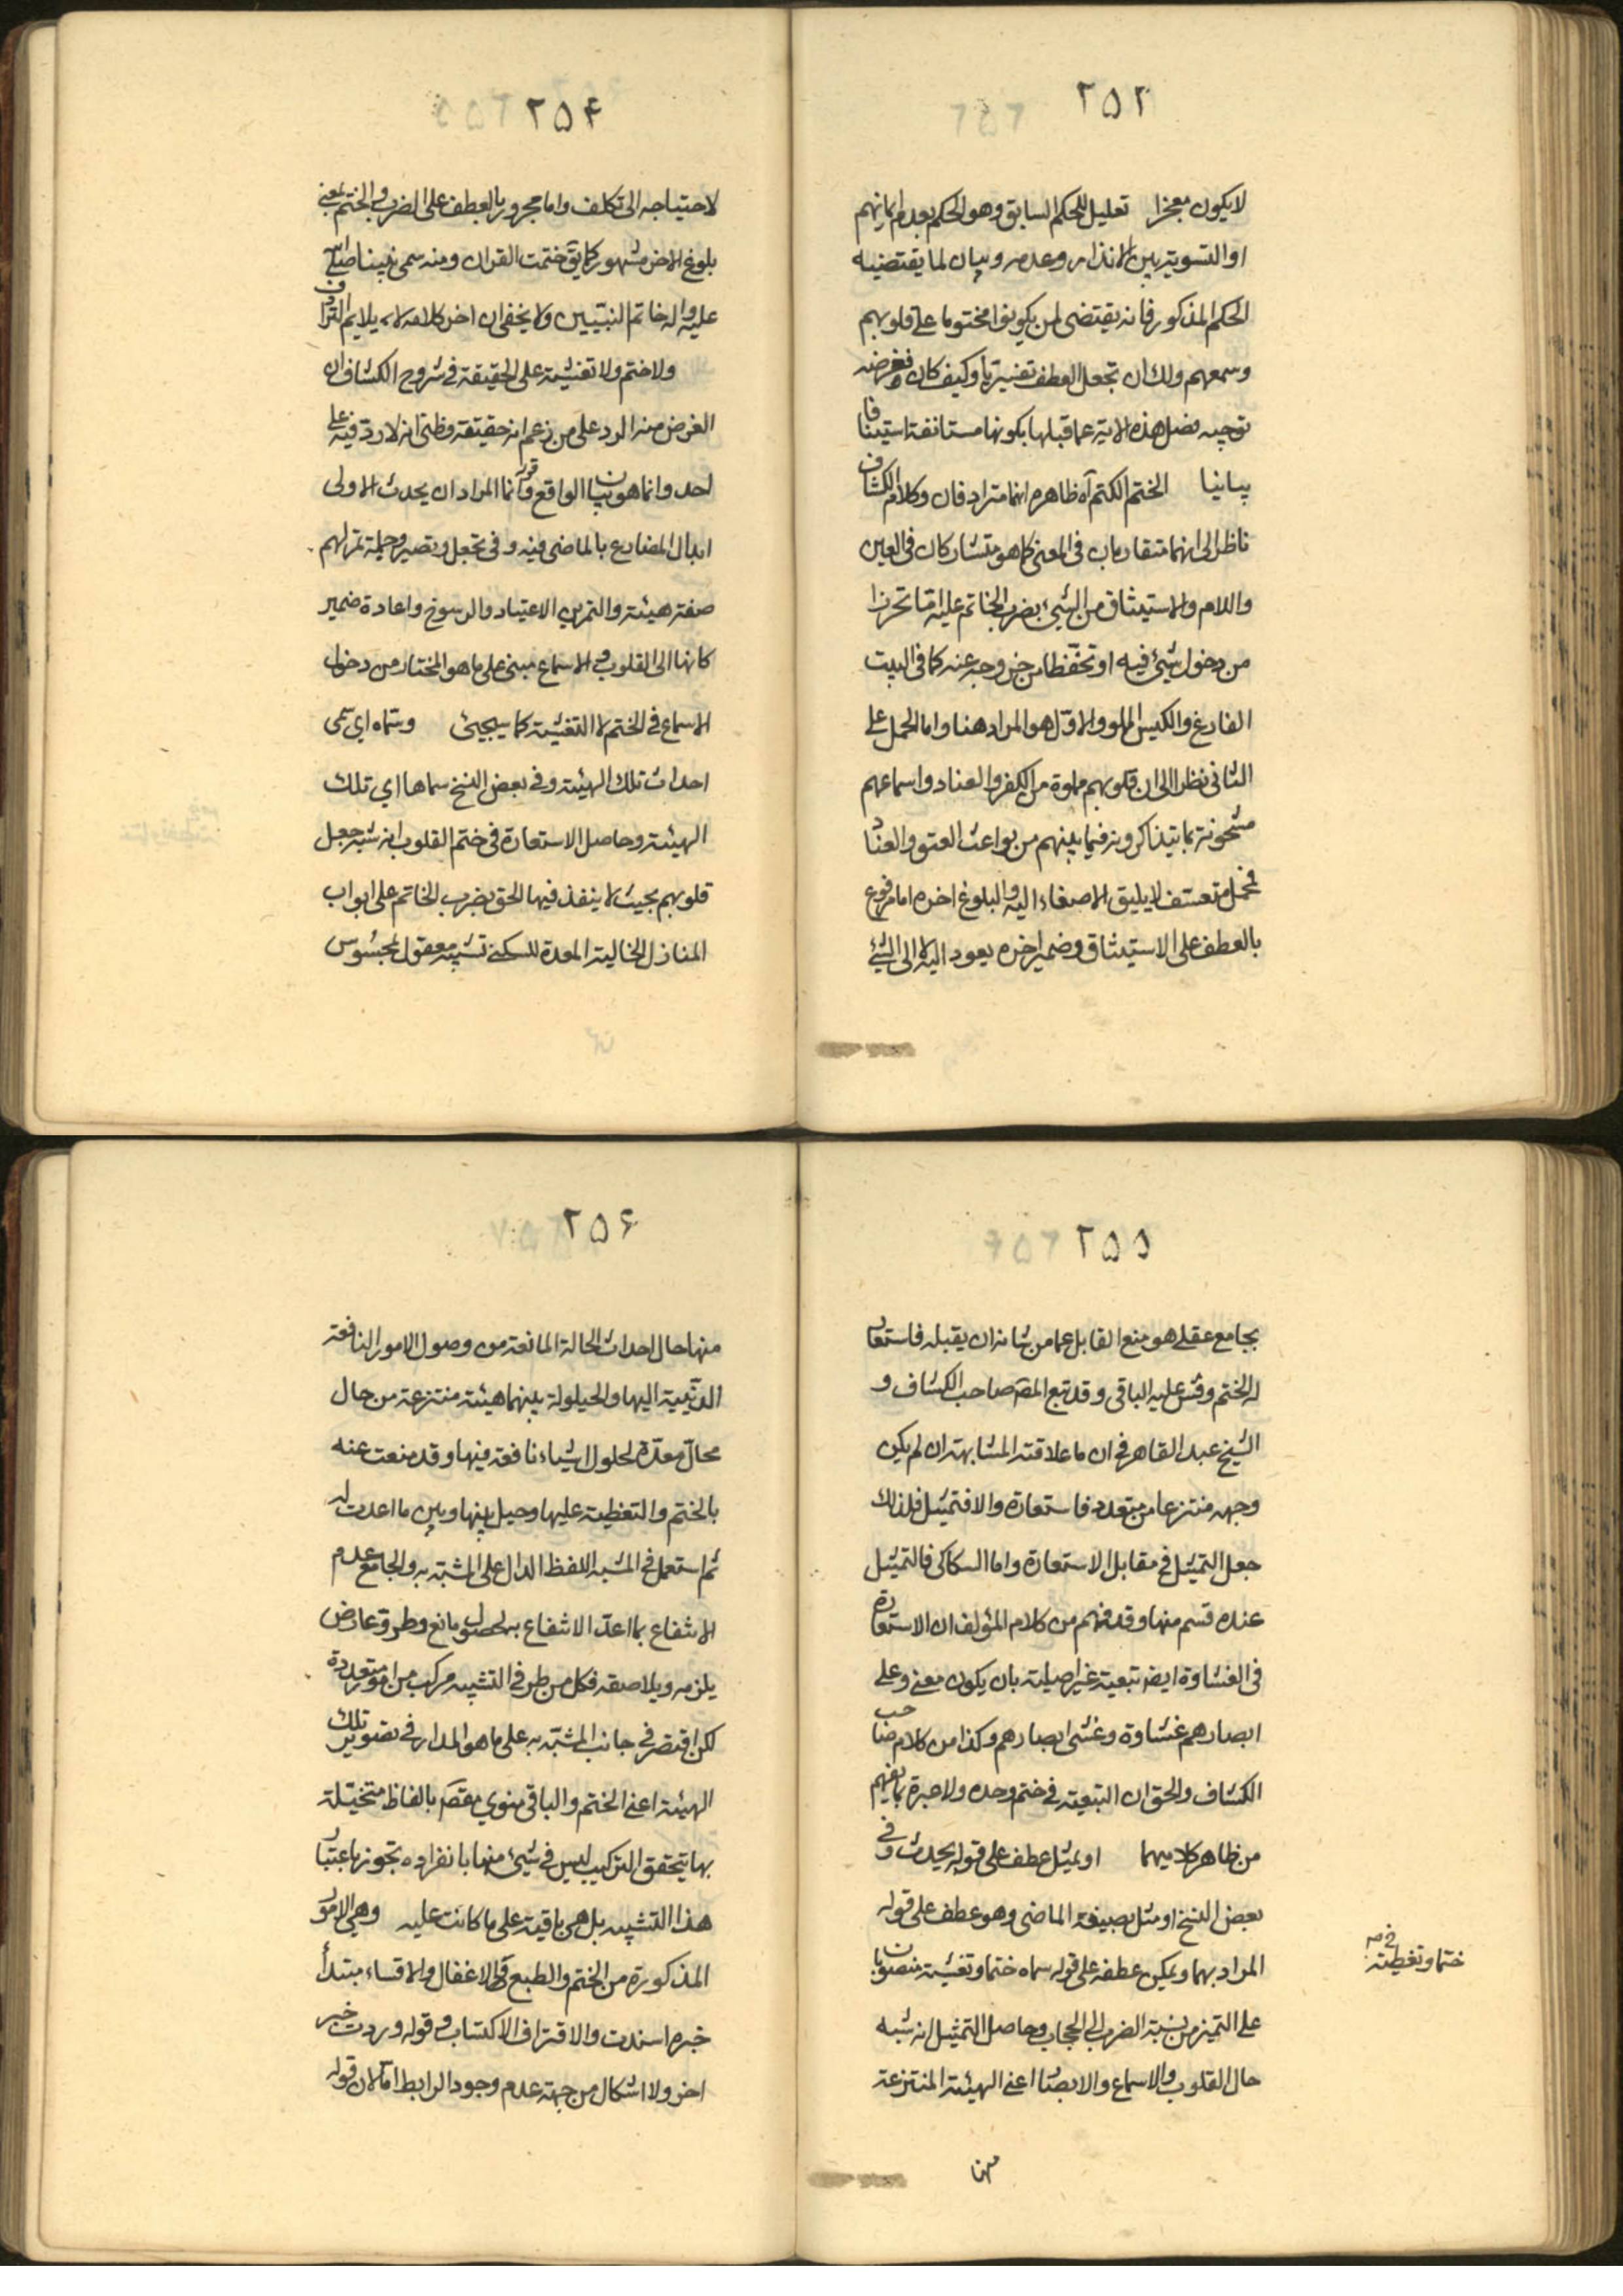 ٢٥٣
لا يكون معجزا تعليل للحكم السابق وهو الحكم بعدم ايمانهم
او التسوية بين الانذار وعدمه وبيان لما يقتضيه
الحكم المذكور فانه يقتضى لمن يكونوا مختوما على قلوبهم
وسمعهم ولك ان تجعل العطف تفسيريا وكيف كان فغرضه
توجيه فصل هذه الاية عما قبلها بكونها مستانفة استينافا
بيانيا الختم الكتم آه ظاهره انهما مترادفان وكلام الكشاف
ناظر الى انهما متقاربان فى المعنى كما هو متشاركان فى العين
واللام والاستيثاق من الشيئ بضرب الخاتم عليه امّا تحرزا
من دخول شيئ فيه او تحفّظا من خروجه عنه كما فى البيت
الفارغ والكيس المملو والاوّل هو المراد هنا واما الحمل على
الثانى نظرا الى ان قلوبهم مملوة من الكفر والعناد واسماعهم
مشحونة بما يتذاكرونه فيما بينهم من بواعث العتو والعناد
فمحل متعسف لا يليق الاصغاء اليه والبلوغ اخره اما مرفوع
بالعطف على الاستيثاق وضمير اخره يعود اليه لا الى الشيئ
٢٥۴
لاحتياجه الى تكلف واما مجرور بالعطف على الضرب والختم بمعنى
بلوغ الاخر مشهور كما يقٓ ختمت القران ومنه سمى نبينا صلى الله
عليه واله خاتم النبيين ولا يخفى ان اخر كلامه لا يلايم الترادف
ولا ختم ولا تغشية على الحقيقة فى شروح الكشاف ان
الغرض منه الرد على من زعم انه حقيقة وظنى انه لا رد فيه على
احد وانما هو بيان الواقع قوله وانما المراد ان يحدث الاولى
ابدال المضارع بالماضى فيه وفى تجعل وتصير وجملة تمرنهم
صفة هيئة والتمرين الاعتياد والرسوخ واعادة ضمير
كانها الى القلوب والاسماع مبنى على ما هو المختار من دخول
الاسماع فى الختم لا التغشية كما سيجيئ وسماه اي سمى
احداث تلك الهيئة وفى بعض النسخ سماها اي تلك
الهيئة وحاصل الاستعارة فى ختم القلوب انه شبه جعل
قلوبهم بحيث لا ينفذ فيها الحق بضرب الخاتم على ابواب
المنازل الخالية المعدة للسكنى تشبيه معقول بمحسوس
٢٥٥
بجامع عقلى هو منع القابل عما من شانه ان يقبله فاستعار
له الختم وقس عليه الباقى وقد تبع المصٓ صاحب الكشاف و
الشيخ عبد القاهر فى ان ما علاقته المشابهة ان لم يكن
وجهه منتزعا من متعدد فاستعارة والا فتمثيل فلذلك
جعل التمثيل فى مقابل الاستعارة واما السكاكى فالتمثيل
عنده قسم منها وقد فهم من كلام المؤلف ان الاستعارة
فى الغشاوة ايضٓ تبعية غير اصلية بان يكون معنى وعلى
ابصارهم غشاوة وغشى ابصارهم وكذا من كلام صاحب
الكشاف والحق ان التبعية فى ختم وحده ولا عبرة بما يفهم
من ظاهر كلاميهما او يمثل عطف على قوله يحدث وفى
بعض النسخ او مثل بصيغة الماضى وهو عطف على قوله
المراد بهما ويمكن عطفه على قوله سماه ختما وتغشية منصوبان
على التميز من نسبة الضرب الى الحجاب وحاصل التمثيل انه شبه
حال القلوب والاسماع والابصار اعنى الهيئة المنتزعة
ختما وتغطية
منها
٢٥۶
منها حال احداث الحالة المانعة من وصول الامور النافعة
الدينية اليها والحيلولة بينهما هيئة منتزعة من حال
محالّ معدّة لحلول اشياء نافعة فيها وقد منعت عنه
بالختم والتغطية عليها وحيل بينها وبين ما اعدت له
ثم استعمل فى المشبه اللفظ الدال على المشبّه به والجامع عدم
الانتفاع بما اعدّ الانتفاع به لحصول مانع وطروّ عارض
يلزمه ويلاصقه فكل من طرفى التشبيه مركب من امور متعددة
لكن اقتصر فى جانب المشبّه به على ما هو المدار فى تصوير تلك
الهيئة اعنى الختم والباقى منوي مقصٓ بالفاظ متخيّلة
بها يتحقق التركيب ليس فى شيئ منها بانفراده تجوز باعتبار
هذا التشبيه بل هى باقية على ما كانت عليه وهى الامور
المذكورة من الختم والطبع والاغفال والاقساء مبتدأ
خبره اسندت والاقتراف الاكتساب وقوله وردت خبر
اخر ولا اشكال من جهة عدم وجود الرابط امّا لان قوله